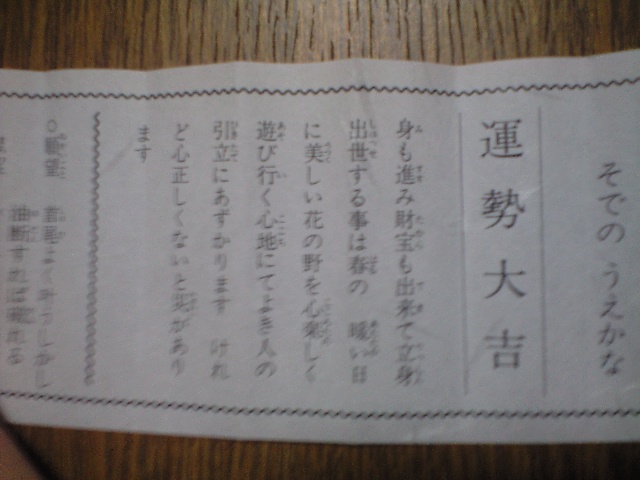 そでの うえかな
運勢大吉
身も進み財宝も出来て立身
出世する事は春の 暖い日
に美しい花の野を心楽しく
遊び行く心地にてよき人の
引立にあずかります けれ
ど心正しくないと災があり
ます
○願望 首尾よく叶うしかし
油断すれば破れる